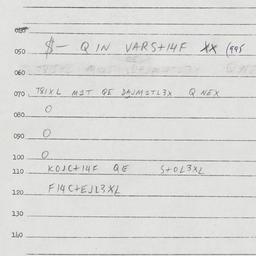 050 $— Q IN VARS+14F XX (995
060
070 T8IXL M2T QE Q NEX
080 O
090 O
100 O
110 KOJC+14F QE S+OL3XL
120 F14C+EJL3XL
130
140